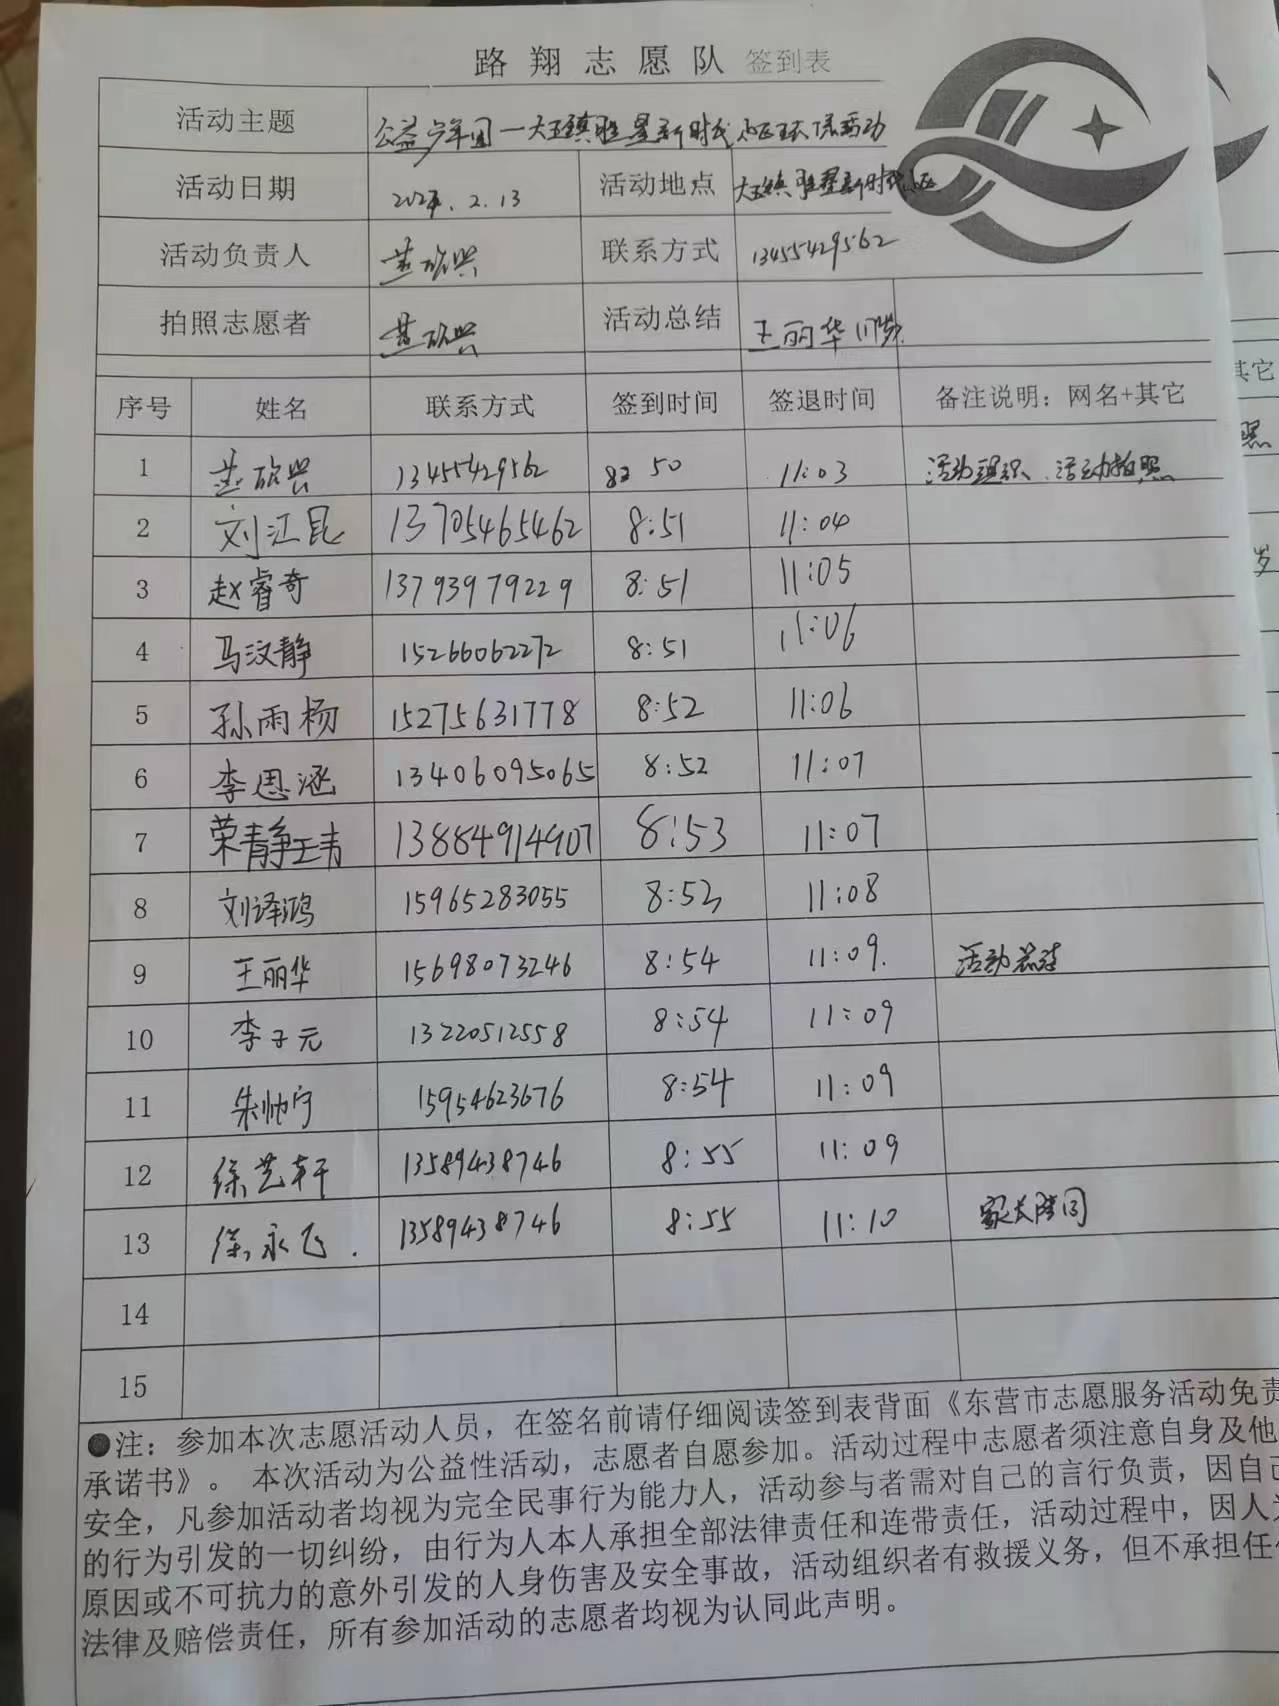 路翔志愿队 签到表
活动主题 公益少年团一大王镇胜星新时代小区环保活动
活动日期 2024.2.13 活动地点 大王镇胜星新时代小区
活动负责人 联系方式 13455429562
拍照志愿者 活动总结 王丽华
序号 姓名 联系方式 签到时间 签退时间 备注说明：网名+其它
1 13455429562 8:50 11:03 活动组织、活动拍照
2 刘江昆 13705465462 8:51 11:04
3 赵睿奇 13793979229 8:51 11:05
4 马汶静 15266062272 8:51 11:06
5 孙雨杨 15275631778 8:52 11:06
6 李思涵 13406095065 8:52 11:07
7 荣静 13884914907 8:53 11:07
8 刘译鸿 15965283055 8:53 11:08
9 王丽华 15698073246 8:54 11:09. 活动总结
10 李子元 13220512558 8:54 11:09
11 朱帅宁 15954623676 8:54 11:09
12 徐艺轩 13589438746 8:55 11:09
13 徐永飞. 13589438746 8:55 11:10 家长陪同
14
15
●注：参加本次志愿活动人员，在签名前请仔细阅读签到表背面《东营市志愿服务活动免责
承诺书》。 本次活动为公益性活动，志愿者自愿参加。活动过程中志愿者须注意自身及他
安全，凡参加活动者均视为完全民事行为能力人，活动参与者需对自己的言行负责，因自己
的行为引发的一切纠纷，由行为人本人承担全部法律责任和连带责任，活动过程中，因人
原因或不可抗力的意外引发的人身伤害及安全事故，活动组织者有救援义务，但不承担任
法律及赔偿责任，所有参加活动的志愿者均视为认同此声明。
其它
照
岁